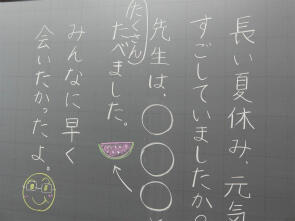 長い夏休み、元気
すごしていましたか。
先生は、〇〇〇
たくさん
たべました。
みんなに早く
会いたかったよ。